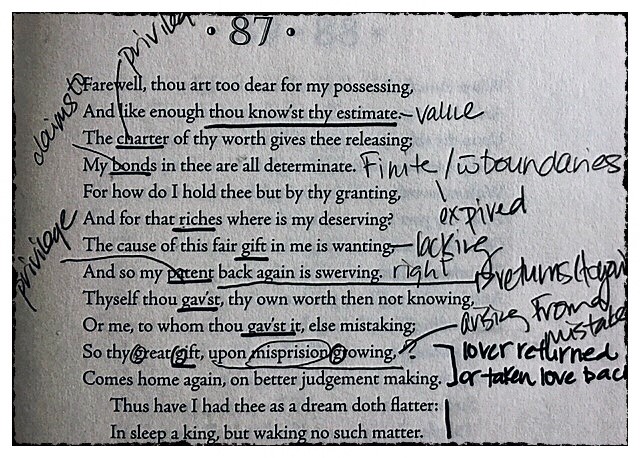 privilege
• 87 •
claims to
Farewell, thou art too dear for my possessing,
And like enough thou know'st thy estimate. value
The charter of thy worth gives thee releasing;
My bonds in thee are all determinate. Finite / w boundaries
For how do I hold thee but by thy granting,
expired
And for that riches where is my deserving?
privilege
The cause of this fair gift in me is wanting, lacking
And so my patent back again is swerving. right returns (to you)
Thyself thou gav'st, thy own worth then not knowing,
Or me, to whom thou gav'st it, else mistaking; arising From a mistake
So thy great gift, upon misprision growing, ? lover returned
Comes home again, on better judgement making. or taken love back
Thus have I had thee as a dream doth flatter:
In sleep a king, but waking no such matter.